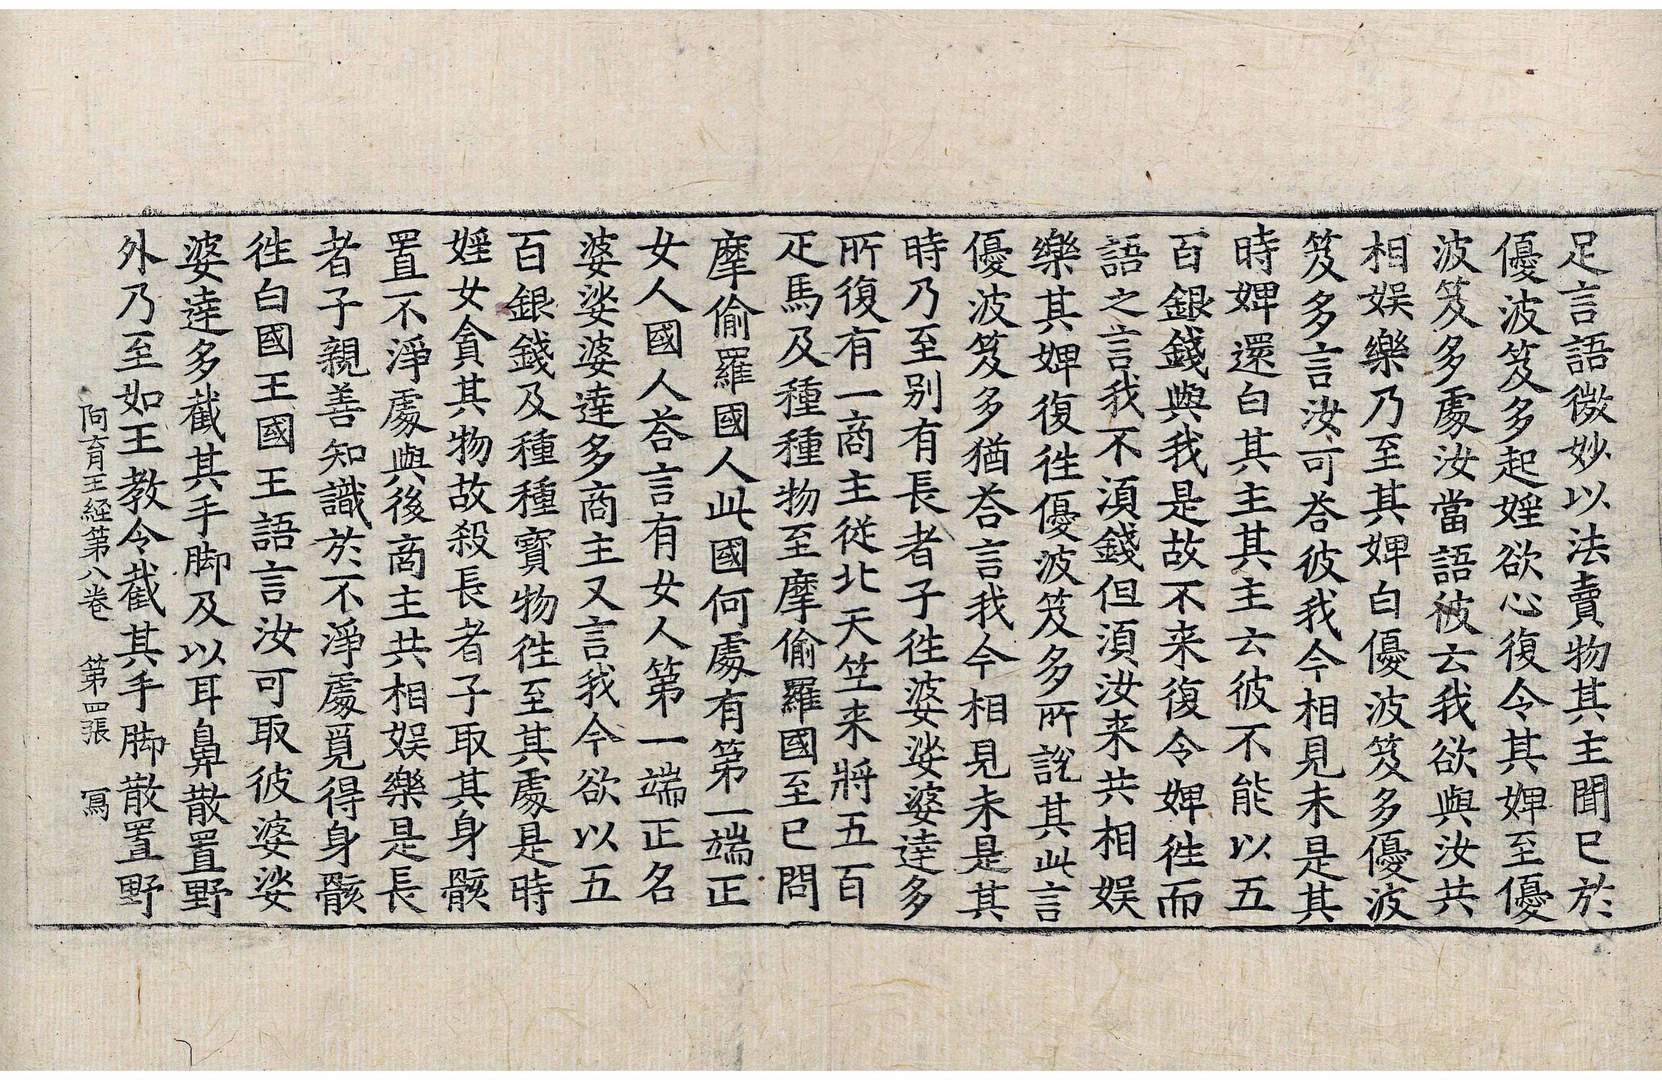 足言語微妙以法賣物其主聞已於
優波笈多起婬欲心復令其婢至優
波笈多處汝當語彼云我欲與汝共
相娯樂乃至其婢白優波笈多優波
笈多言汝可荅彼我今相見未是其
時婢還白其主其主云彼不能以五
百銀錢與我是故不来復令婢徃而
語之言我不湏錢但湏汝来共相娯
樂其婢復徃優波笈多所說其此言
優波笈多猶荅言我今相見未是其
時乃至别有長者子徃婆娑婆達多
所復有一商主從北天竺来將五百
疋馬及種種物至摩偷羅國至已問
摩偷羅國人此國何處有第一端正
女人國人荅言有女人第一端正名
婆娑婆達多商主又言我今欲以五
百銀錢及種種寳物徃至其處是時
婬女貪其物故殺長者子取其身骸
置不淨處與後商主共相娯樂是長
者子親善知識於不淨處覓得身骸
徃白國王國王語言汝可取彼婆娑
婆達多截其手脚及以耳鼻散置野
外乃至如王教令截其手脚散置野
阿育王經第八卷 第四張 寫